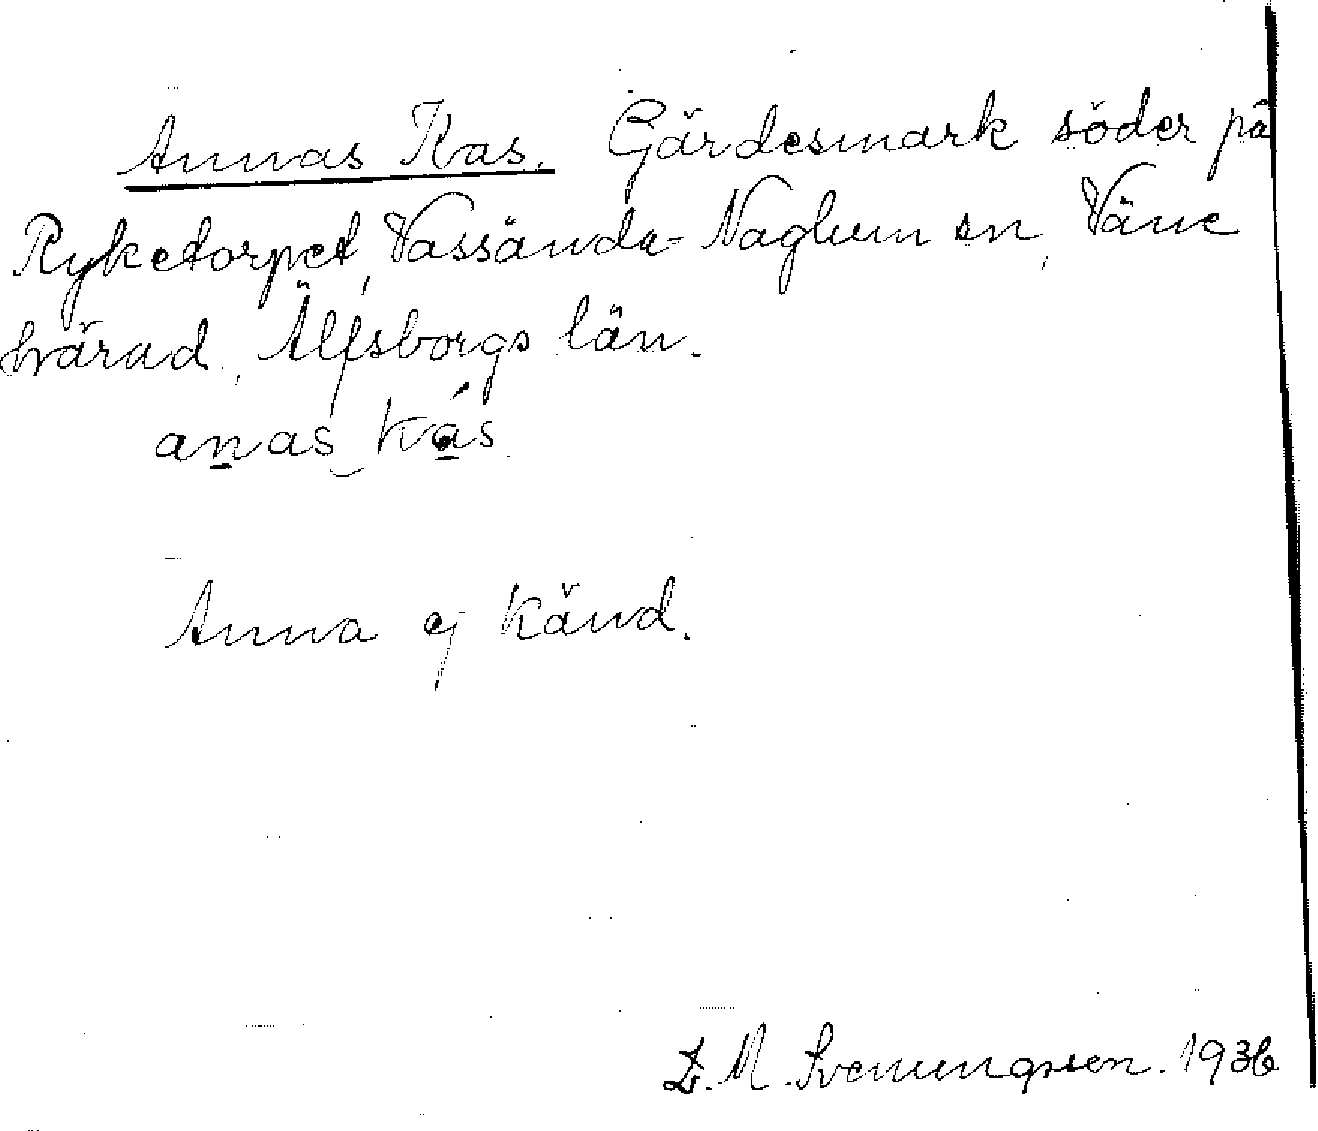 Annas Kas. Gärdesmark söder på
Ryketorpet, Vassända-Naglum sn, Väne
härad, Älfsborgs län.
anas kás
Anna ej känd.
M. Svenungsson. 1936